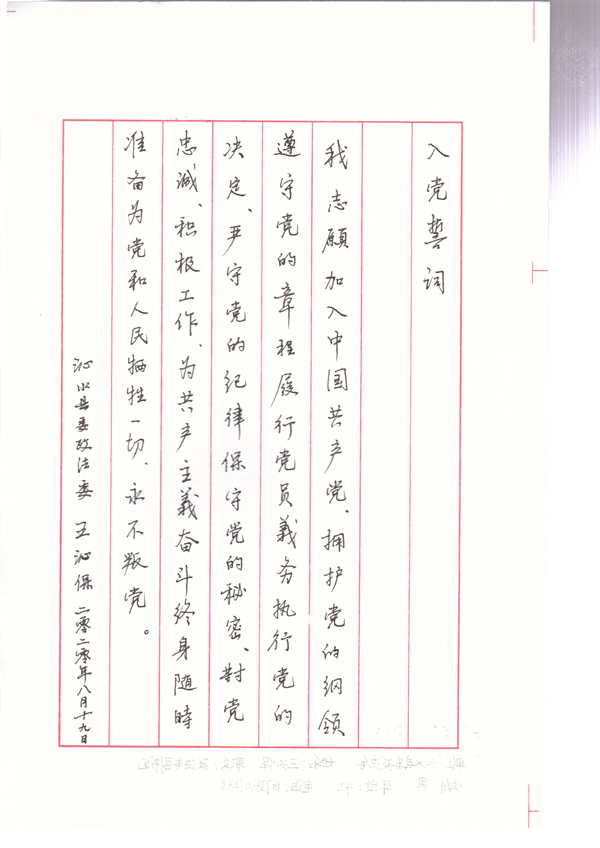 入党誓词
我志愿加入中国共产党、拥护党的纲领
遵守党的章程履行党员義务执行党的
决定、严守党的纪律保守党的秘密、對党
忠诚、积极工作、为共产主義奋斗终身随時
准备为党和人民牺牲一切、永不叛党。
沁水县委政法委 王沁保 二零二零年八月十九日